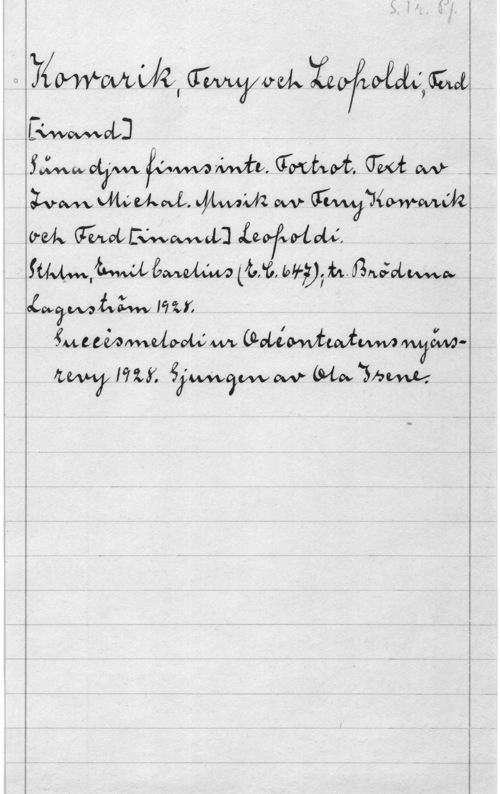 S. Tr. Pf.
Kowarik, Ferry och Leopoldi, Ferd
[inand]
Såna djur finns inte. Foxtrot. Text av
Ivan Michal. Musik av Ferry Kowarik
och Ferd[inand] Leopoldi.
Sthlm, Emil Carelius (E.C. 647); tr. Bröderna
Lagerström 1928.
Succèsmelodi ur Odéonteaterns nyårs-
revy 1928. Sjungen av Ola Isene.